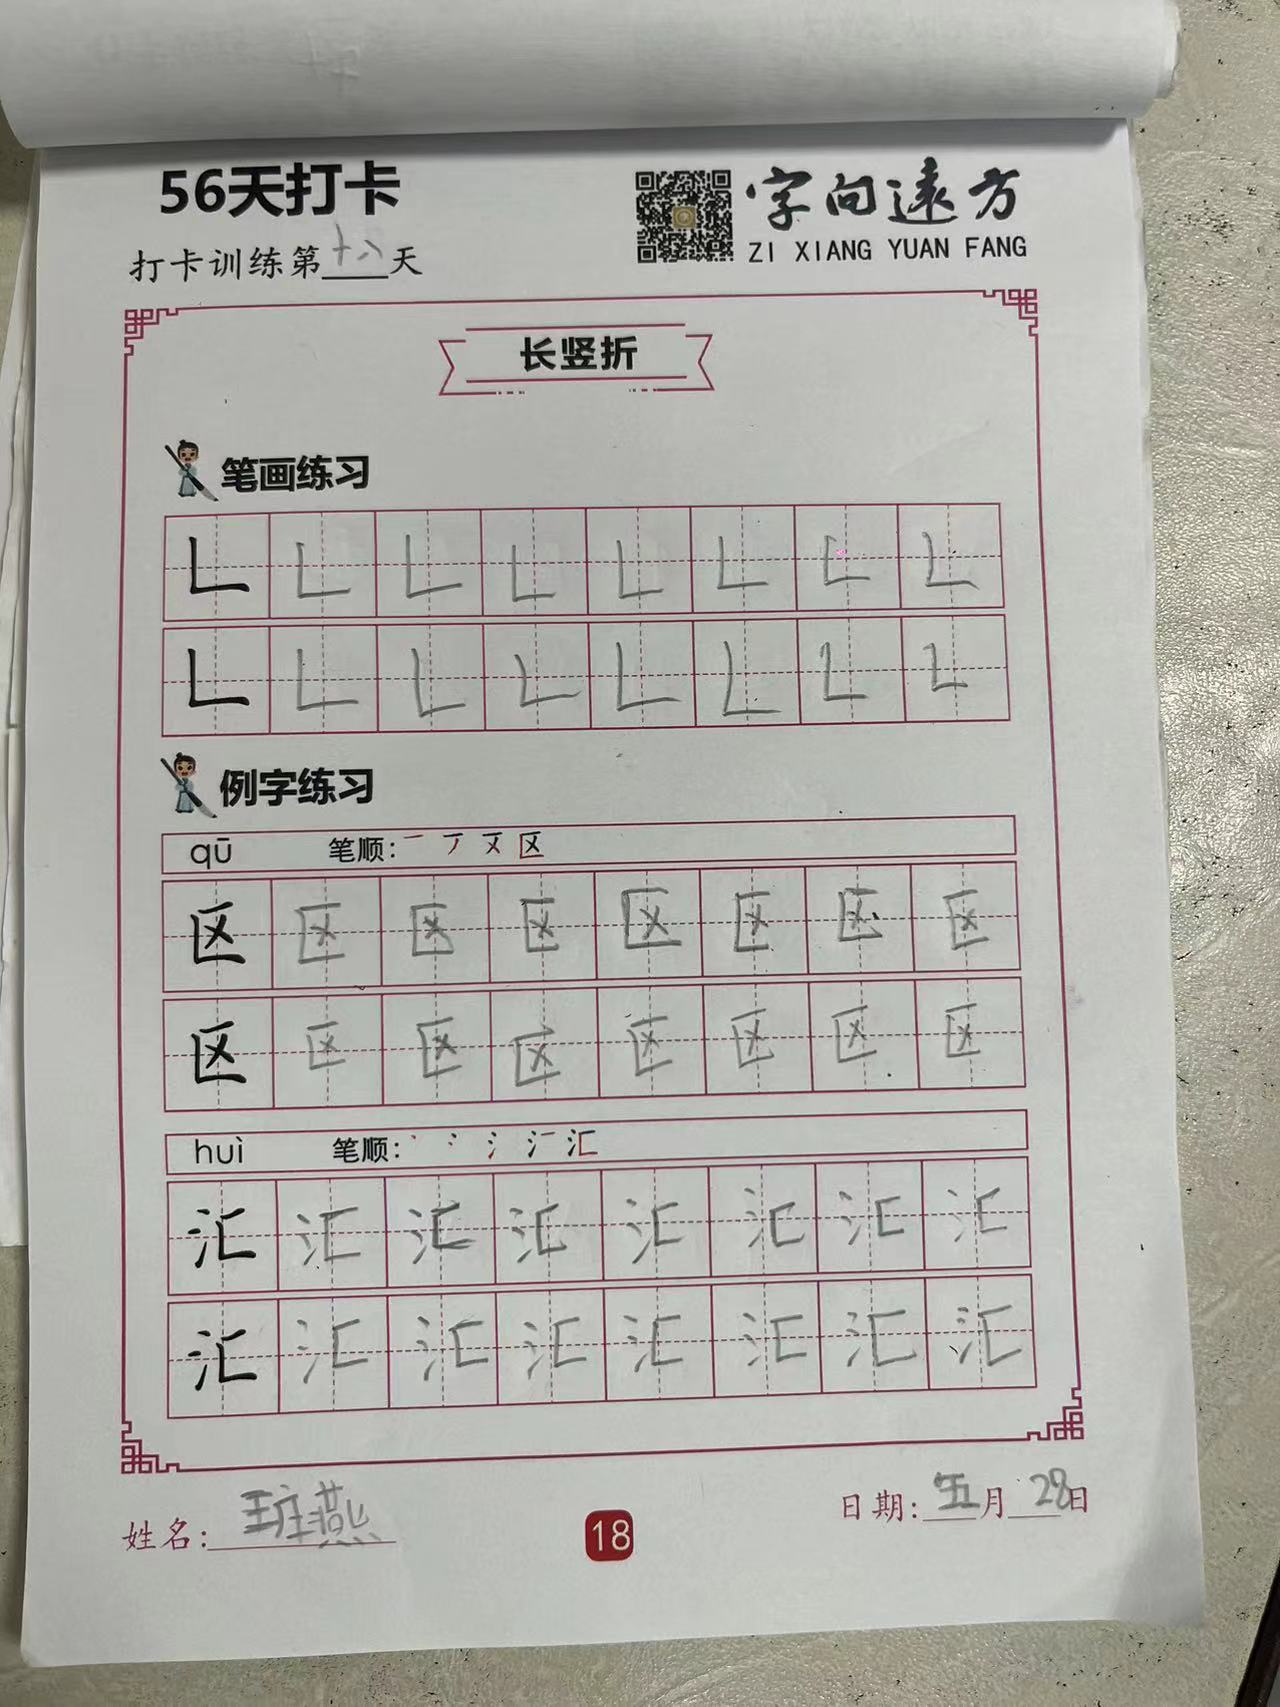 56天打卡
字向远方
ZI XIANG YUAN FANG
打卡训练第十八天
长竖折
笔画练习
例字练习
qū 笔顺: 区
区 区 区 区 区 区 区 区
区 区 区 区 区 区 区 区
huì 笔顺: 汇
汇 汇 汇 汇 汇 汇 汇 汇
汇 汇 汇 汇 汇 汇 汇 汇
姓名: 燕
18
日期: 五月28日